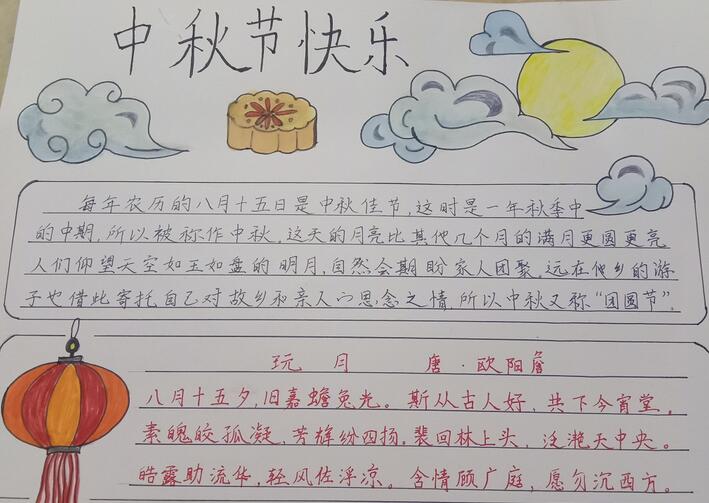 中秋节快乐
每年农历的八月十五日是中秋佳节，这时是一年秋季中
的中期，所以被称作中秋，这天的月亮比其他几个月的满月更圆更亮
人们仰望天空如玉如盘的明月，自然会期盼家人团聚，远在他乡的游
子也借此寄托自己对故乡和亲人门思念之情，所以中秋又称“团圆节”。
玩月 唐·欧阳詹
八月十五夕，旧嘉蟾兔光。斯从古人好，共下今宵堂。
素魄皎孤凝，芳辉纷四扬。裴回林上头，泛滟天中央。
皓露助流华，轻风佐浮凉。含情顾广庭，愿勿沉西方。